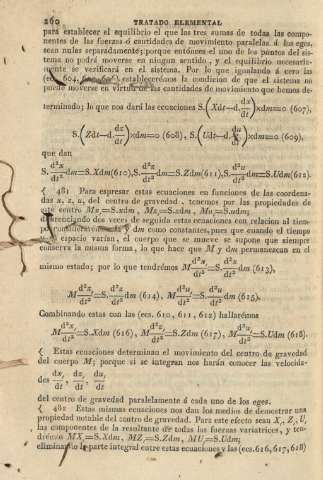 260 TRATADO ELEMENTAL
para establecer el equilibrio el que las tres sumas de todas las compo-
nentes de las fuerzas ó cantidades de movimiento paralelas á los eges,
sean nulas separadamente; porque entónces el uno de los puntos del sis-
tema no podrá moverse en ningun sentido, y el equilibrio necesaria-
mente se verificará en el sistema. Por lo que igualando á cero las
(ecs. 604, estableceríamos la condicion de que el sistema no
puede moverse en virtud de las cantidades de movimiento que hemos de-
terminado; lo que nos dará las ecuaciones S.(Xdt—d.dx/dt)×dm=0 (607),
S.(Zdt—d.dz/dt)×dm=0 (608), S.(Udt—d.du/dt)×dm=0 (609),
que dan
S.d²x/dt² dm=S.Xdm(610), S.d²z/dt² dm=S.Zdm(611), S.d²u/dt² dm=S.Udm(612).
481 Para espresar estas ecuaciones en funciones de las coordena-
das x, z, u, del centro de gravedad, tenemos por las propiedades de
este centro Mx,=S.xdm, Mz,=S.zdm, Mu,=S.udm;
diferenciando dos veces de seguida estas ecuaciones con relacion al tiem-
po dm como constantes, pues que cuando el tiempo
y el espacio varían, el cuerpo que se mueve se supone que siempre
conserva la misma forma, lo que hace que M y dm permanezcan en el
mismo estado; por lo que tendrémos M d²x,/dt²=S.d²x/dt² dm (613),
M d²z,/dt²=S.d²z/dt² dm (614), M d²u,/dt²=S.d²u/dt² dm (615).
Combinando estas con las (ecs. 610, 611, 612) hallarémos
M d²x,/dt²=S.Xdm (616), M d²z,/dt²=S.Zdm (617), M d²u,/dt²=S.Udm (618).
Estas ecuaciones determinan el movimiento del centro de gravedad
del cuerpo M; porque si se integran nos harán conocer las velocida-
des dx,/dt, dz,/dt, du,/dt
del centro de gravedad paralelamente á cada uno de los eges.
482 Estas mismas ecuaciones nos dan los medios de demostrar una
propiedad notable del centro de gravedad. Para este efecto sean X,, Z,, U,
las componentes de la resultante de todas las fuerzas variatrices, y ten-
drémos MX,=S.Xdm, MZ,=S.Zdm, MU,=S.Udm;
eliminando la parte integral entre estas ecuaciones y las (ecs. 616, 617, 618)